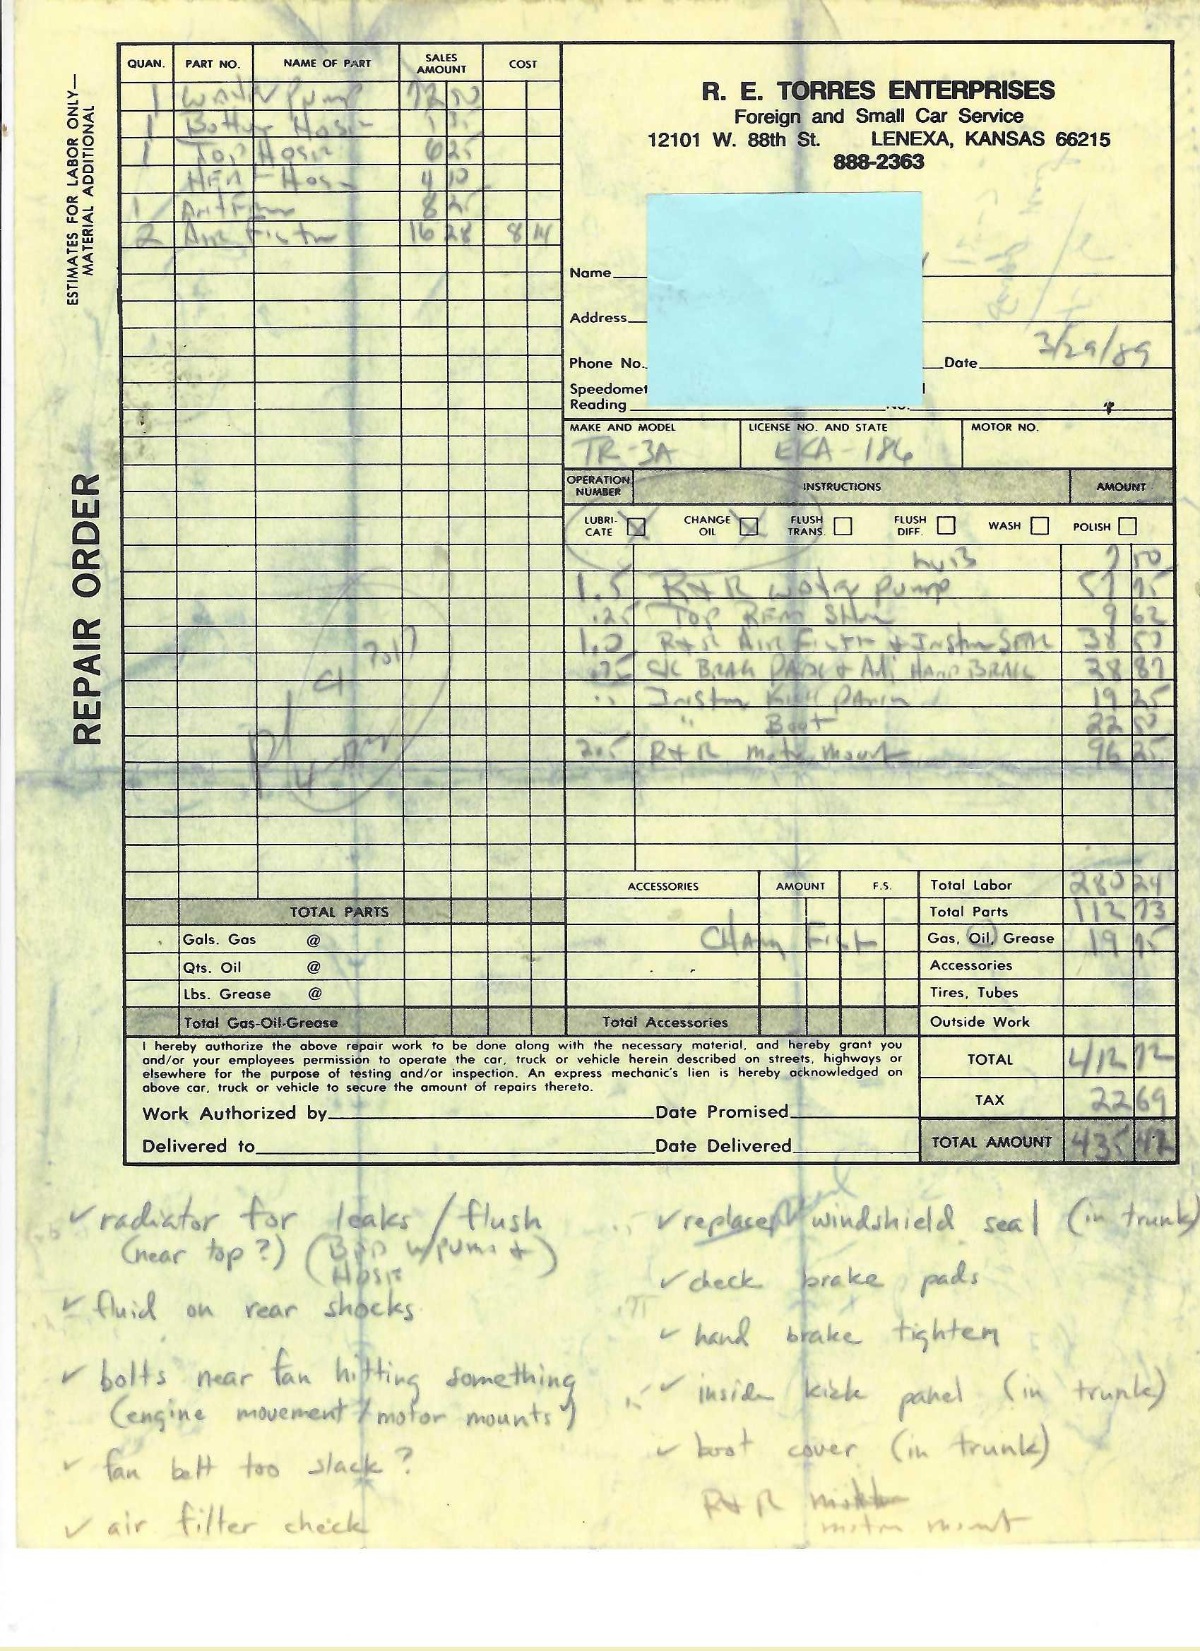 QUAN. PART NO. NAME OF PART SALES AMOUNT COST
1 Water Pump 72 50
1 Bottom Hose
1 Top Hose 6 25
Hose 4 10
1 8 25
2 Air Filter 16 28 8 14
ESTIMATES FOR LABOR ONLY—
MATERIAL ADDITIONAL
REPAIR ORDER
R. E. TORRES ENTERPRISES
Foreign and Small Car Service
12101 W. 88th St. LENEXA, KANSAS 66215
888-2363
Name
Address
Phone No. Date 3/29/89
Speedomet
Reading
MAKE AND MODEL LICENSE NO. AND STATE MOTOR NO.
TR-3A EKA-186
OPERATION NUMBER INSTRUCTIONS AMOUNT
LUBRI-CATE CHANGE OIL FLUSH TRANS. FLUSH DIFF. WASH POLISH
Lub 7 50
1.5 R+R water pump 57 75
.25 Top 9 62
1.0 R+R Air Filter + 38 50
.75 CK Brak + Adj Hand Brake 28 87
Kick 19 25
" Boot 22 50
2.5 R+R motor mount 96 25
ACCESSORIES AMOUNT F.S. Total Labor 280 24
TOTAL PARTS Total Parts 112 73
Gals. Gas @ Gas, Oil, Grease 19 75
Qts. Oil @ Accessories
Lbs. Grease @ Tires, Tubes
Total Gas-Oil-Grease Total Accessories Outside Work
I hereby authorize the above repair work to be done along with the necessary material, and hereby grant you
and/or your employees permission to operate the car, truck or vehicle herein described on streets, highways or
elsewhere for the purpose of testing and/or inspection. An express mechanic's lien is hereby acknowledged on
above car, truck or vehicle to secure the amount of repairs thereto.
TOTAL 412 72
TAX 22 69
Work Authorized by Date Promised
Delivered to Date Delivered TOTAL AMOUNT 435
✓ radiator for leaks / flush
(near top?) (w/pump +
Hose)
✓ fluid on rear shocks
✓ bolts near fan hitting something
(engine movement / motor mounts)
✓ fan belt too slack?
✓ air filter check
✓ replace windshield seal (in trunk)
✓ check brake pads
✓ hand brake tighten
✓ inside kick panel (in trunk)
✓ boot cover (in trunk)
R+R
motor mount